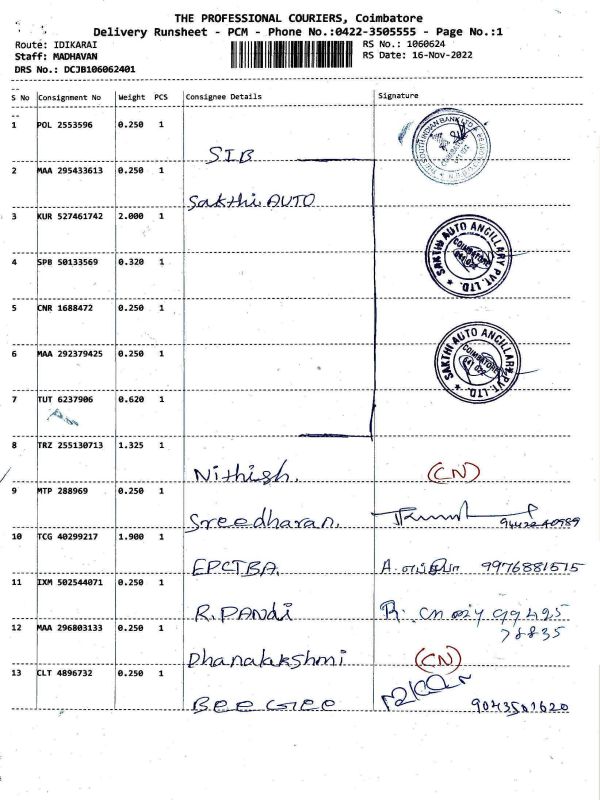 THE PROFESSIONAL COURIERS, Coimbatore
Delivery Runsheet - PCM - Phone No.:0422-3505555 - Page No.:1
Route: IDIKARAI RS No.: 1060624
Staff: MADHAVAN RS Date: 16-Nov-2022
DRS No.: DCJB106062401
S No Consignment No Weight PCS Consignee Details Signature
1 POL 2553596 0.250 1
SIB
2 MAA 295433613 0.250 1
Sakthi AUTO
3 KUR 527461742 2.000 1
SAKTHI AUTO ANCILLARY PVT. LTD.
COIMBATORE
4 SPB 50133569 0.320 1
5 CNR 1688472 0.250 1
SAKTHI AUTO ANCILLARY PVT. LTD.
COIMBATORE
6 MAA 292379425 0.250 1
7 TUT 6237906 0.620 1
8 TRZ 255130713 1.325 1
Nithish. (CN)
9 MTP 288969 0.250 1
Sreedharan.
10 TCG 40299217 1.900 1
EPCTBA. 9976881515
11 IXM 502544071 0.250 1
R. PANDi
12 MAA 296803133 0.250 1
Dhanalakshmi (CN)
13 CLT 4896732 0.250 1
BEE GEE